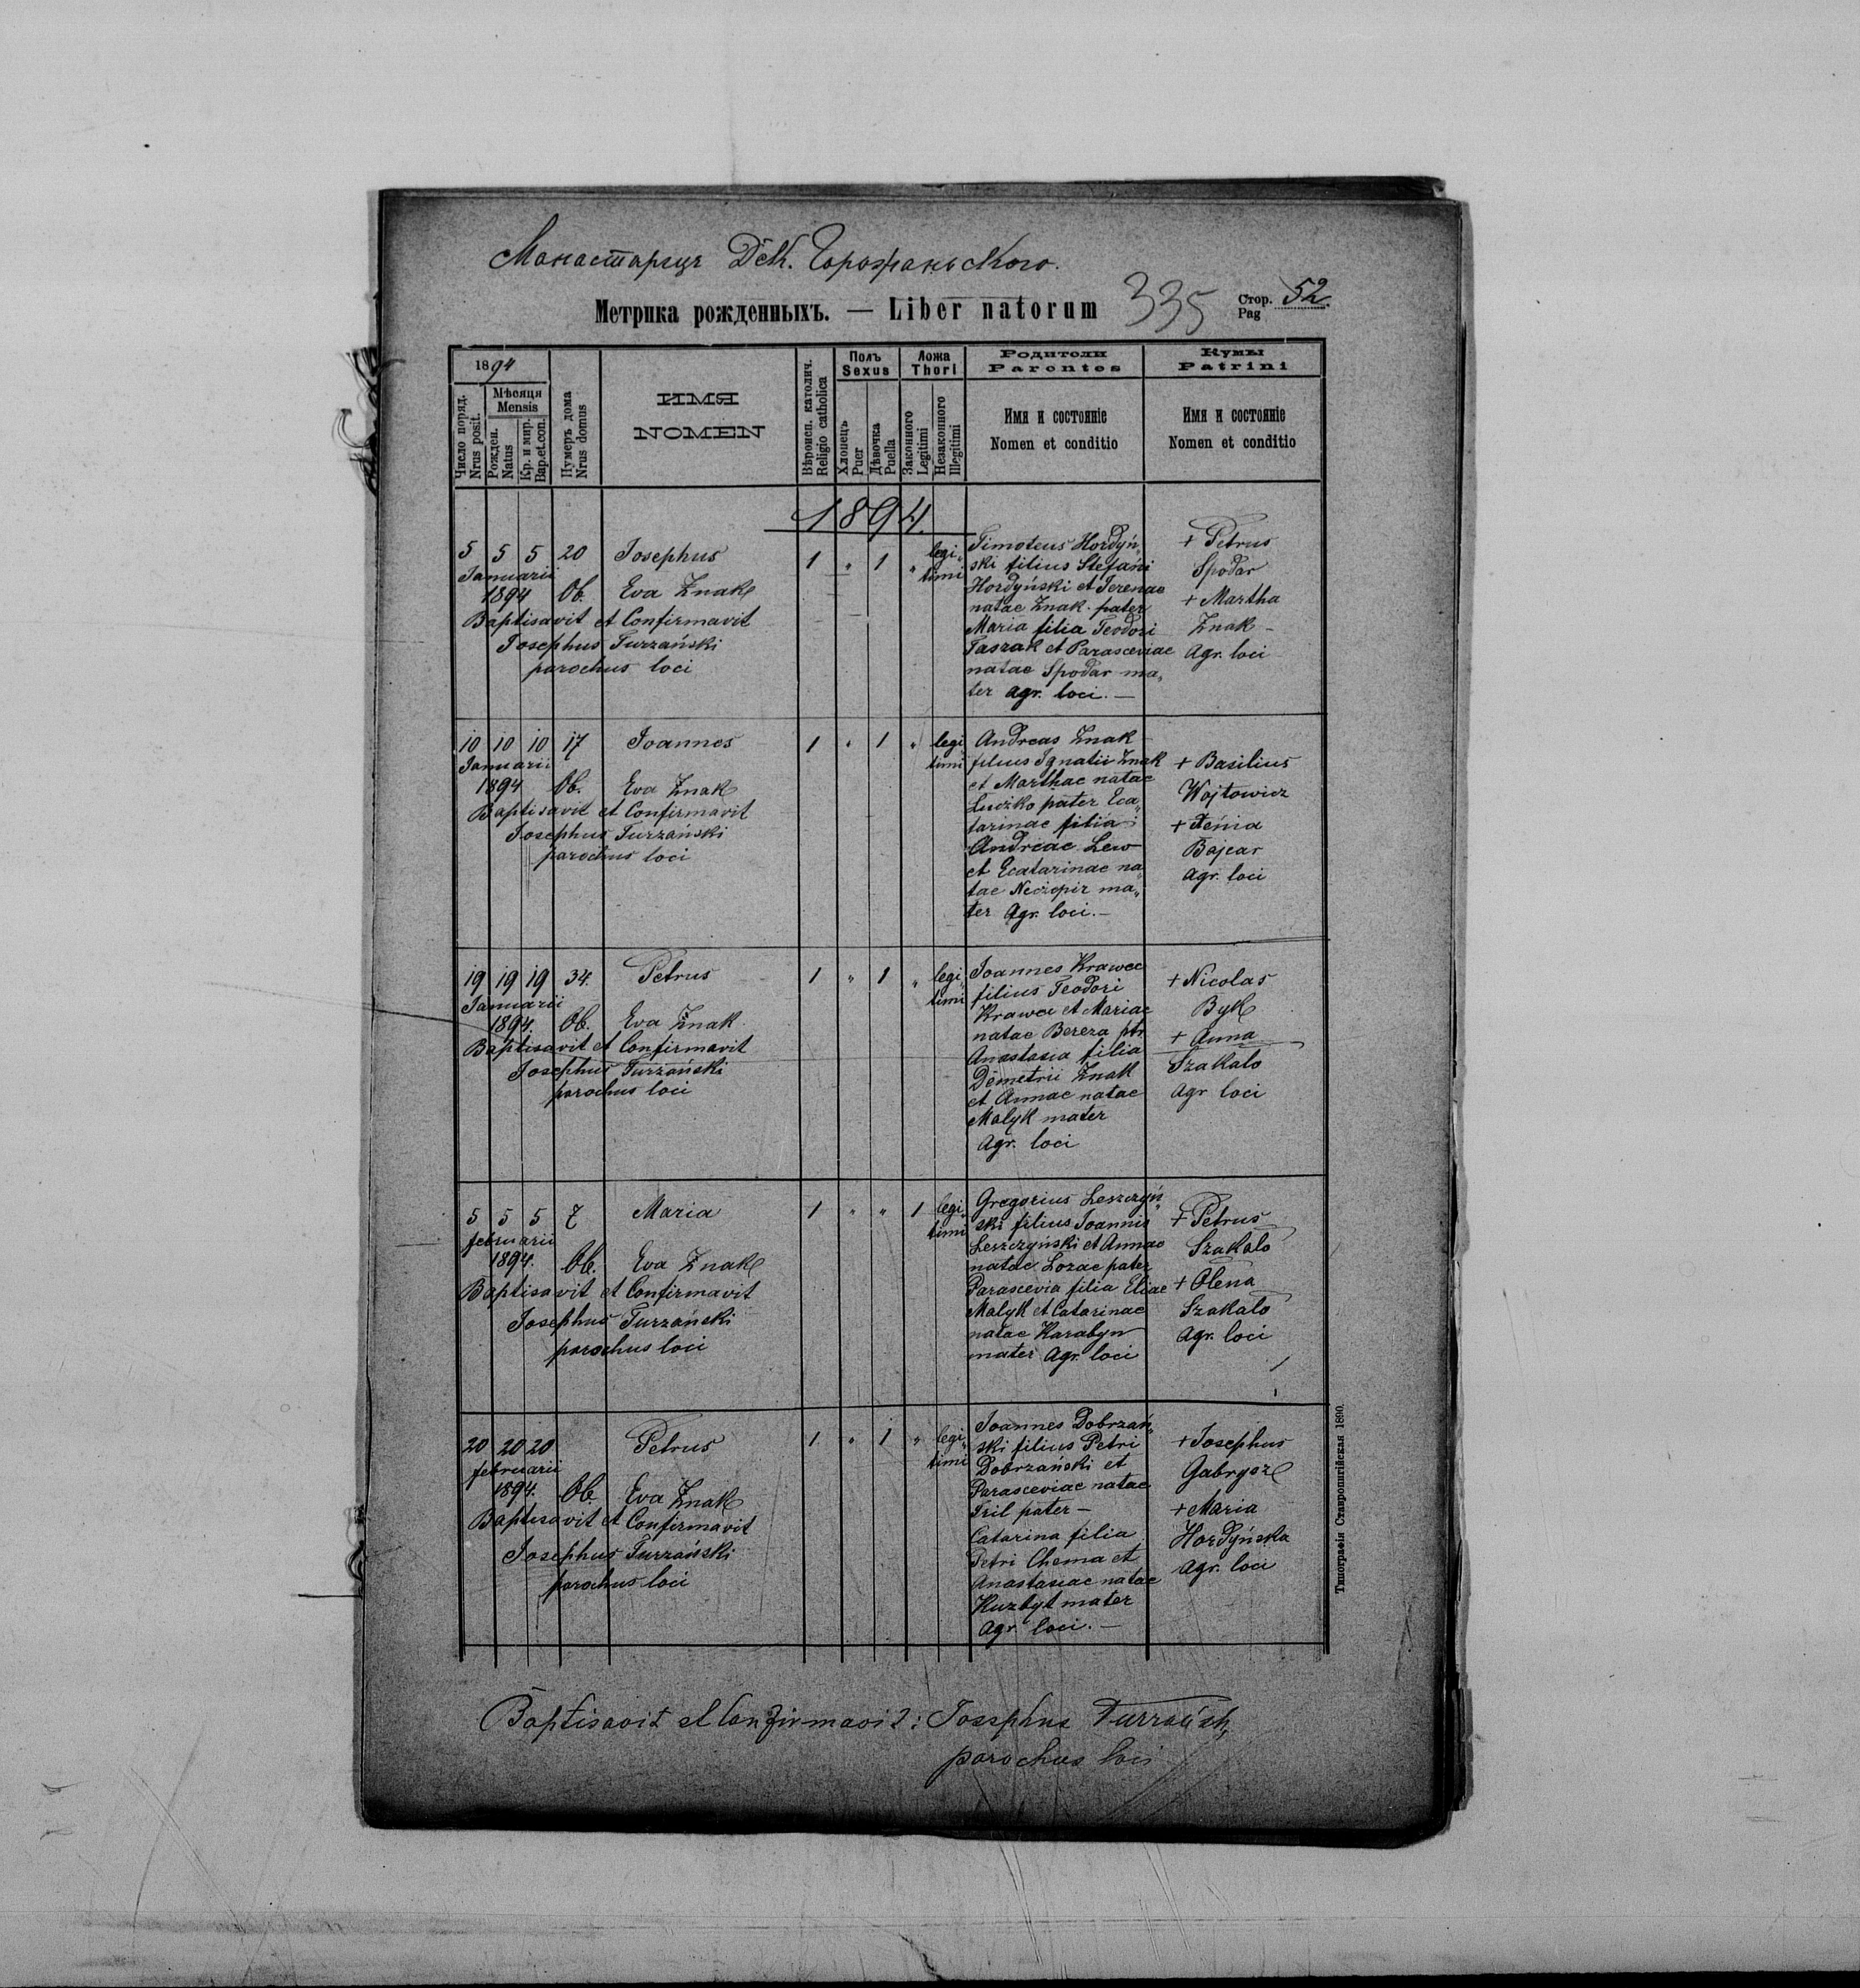 Монастарец Дек. Горожаньского.
Метрика рожденныхъ. — Liber natorum 335 Стор. Pag 52.
1894
Число поряд. Nrus posit.
Мѣсяця Mensis
Рожден. Natus
Кр. и мир. Bap.et.con.
Нумеръ дома Nrus domus
ИМЯ NOMEN
Вѣроисп. католич. Religio catholica
Полъ Sexus
Хлопецъ Puer
Дѣвочка Puella
Ложа Thori
Законного Legitimi
Незаконного Illegitimi
Родители Parentes
Имя и состоянiе
Nomen et conditio
Кумы Patrini
Имя и состоянiе
Nomen et conditio
1894.
5 5 5 20 Josephus 1 " 1 " legi„timi
Januarii
1894 Ob. Eva Znak
Baptisavit et Confirmavit
Josephus Turzański
parochus loci
Timoteus Hordyń„
ski filius Stefani
Hordyński et Terenae
natae Znak pater
Maria filia Teodori
Taszak et Parasceviae
natae Spodar ma„
ter agr. loci. —
+ Petrus
Spodar
+ Martha
Znak
Agr. loci
10 10 10 17 Joannes 1 " 1 " legitimi
Januarii
1894 Ob. Eva Znak
Baptisavit et Confirmavit
Josephus Turzański
parochus loci
Andreas Znak
filius Ignatii Znak
et Marthae natae
Luczko pater Eca„
tarinae filia
Andreae Lew
et Ecatarinae na„
tae Neczepir ma„
ter Agr. loci. —
+ Basilius
Wojtowicz
+ Fenia
Bajcar
agr. loci
19 19 19 34. Petrus 1 " 1 " legi„timi
Januarii
1894. Ob. Eva Znak
Baptisavit et Confirmavit
Josephus Turzański
parochus loci
Joannes Krawec
filius Teodori
Krawec et Mariae
natae Bereza ptr
Anastasia filia
Demetrii Znak
et Annae natae
Malyk mater
Agr. loci
+ Nicolas
Byk
+ Anna
Szakalo
Agr loci
5 5 5 7 Maria 1 " " 1 legi„timi
februarii
1894. Ob. Eva Znak
Baptisavit et Confirmavit
Josephus Turzański
parochus loci
Gregorius Leszczyń„
ski filius Joannis
Leszczyński et Annae
natae Lozae pater
Parascevia filia Eliae
Malyk et Catarinae
natae Karabyn
mater Agr. loci
+ Petrus
Szakalo
+ Olena
Szakalo
Agr. loci
20 20 20 Petrus 1 " 1 " legi„timi
februarii
1894. Ob. Eva Znak
Baptisavit et Confirmavit
Josephus Turzański
parochus loci
Joannes Dobrzań„
ski filius Petri
Dobrzański et
Parasceviae natae
Fril pater —
Catarina filia
Petri Chema et
Anastasiae natae
Kuzbyt mater
Agr. loci. —
+ Josephus
Gabrysz
+ Maria
Hordyńska
Agr. loci
Типографія Ставропигійская 1890.
Baptisavit et Confirmavit: Josephus Turzański,
parochus loci